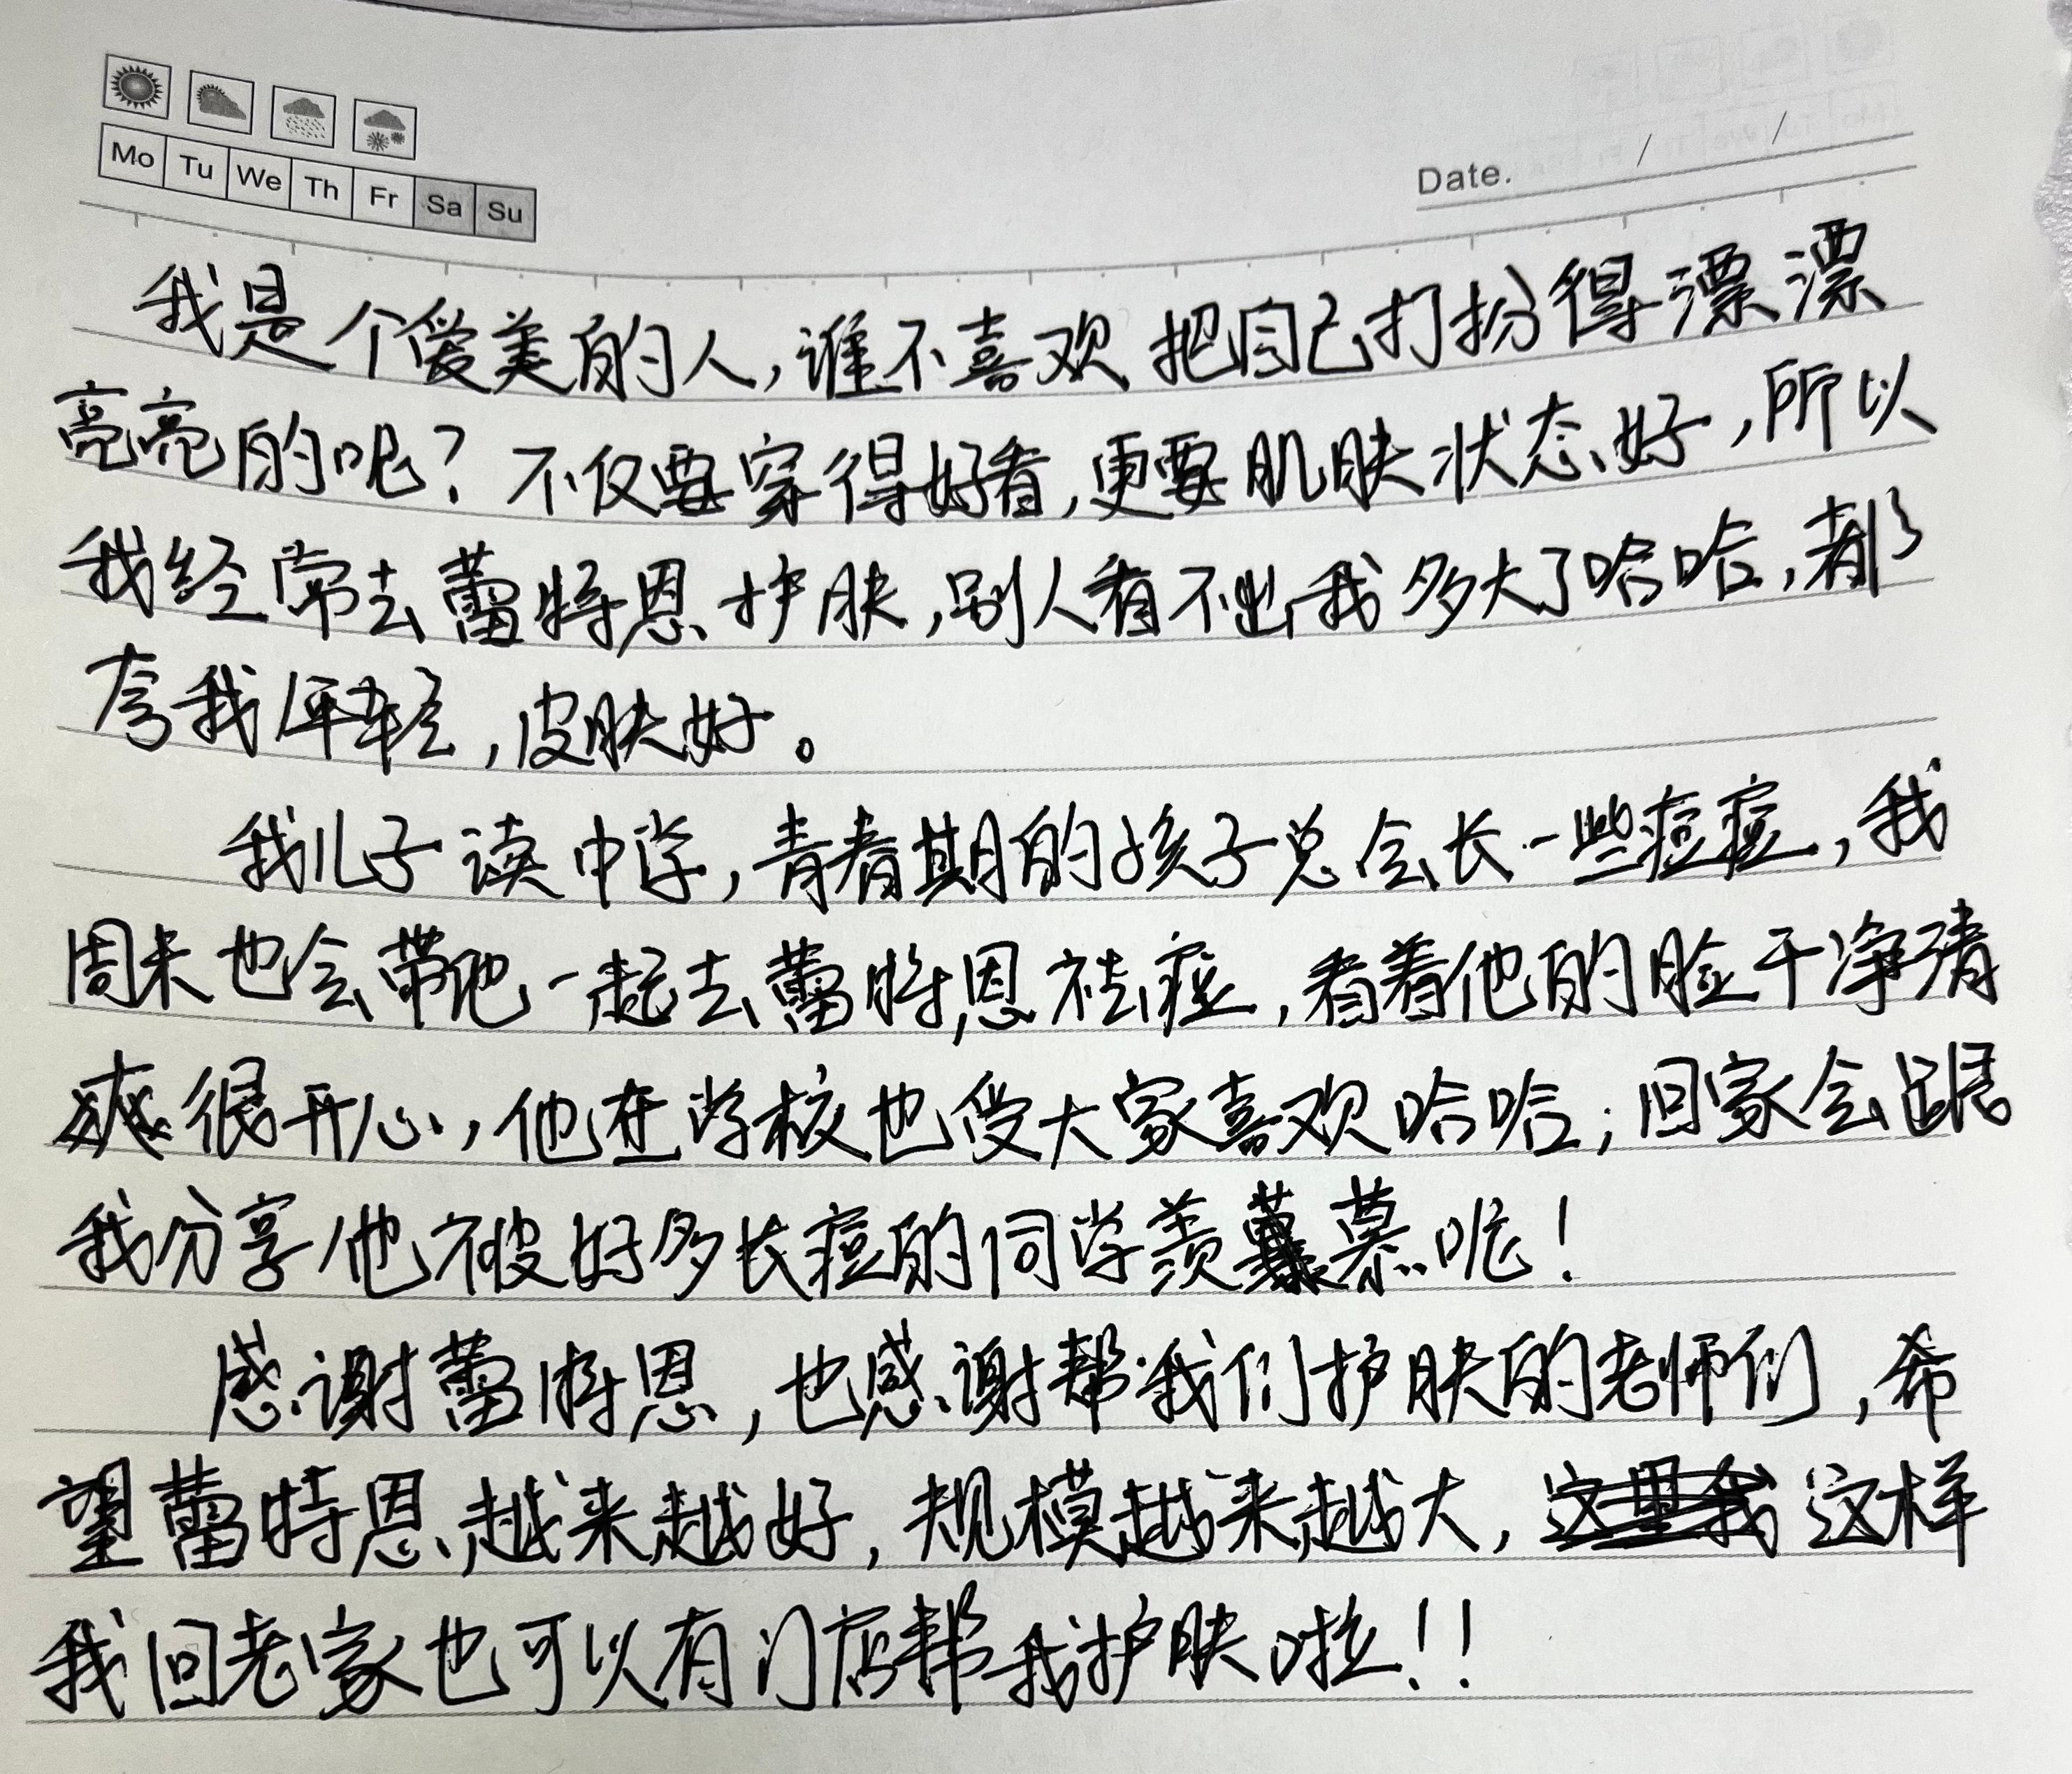 Mo Tu We Th Fr Sa Su
Date. / /
我是个爱美的人,谁不喜欢把自己打扮得漂漂
亮亮的呢?不仅要穿得好看,更要肌肤状态好,所以
我经常去蕾特恩护肤,别人看不出我多大了哈哈,都
夸我年轻,皮肤好。
我儿子读中学,青春期的孩子总会长一些痘痘,我
周末也会带他一起去蕾特恩祛痘,看着他的脸干净清
爽很开心,他在学校也受大家喜欢哈哈;回家会跟
我分享他被好多长痘的同学羡慕呢!
感谢蕾特恩,也感谢帮我们护肤的老师们,希
望蕾特恩越来越好,规模越来越大,这样
我回老家也可以有门店帮我护肤啦!!